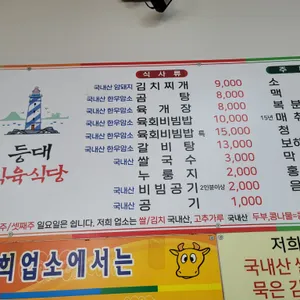 식사류
주
국내산 암돼지 김치찌개 9,000
국내산 한우암소 곰탕 8,000
국내산 한우암소 육개장 8,000
국내산 한우암소 육회비빔밥 10,000
국내산 한우암소 육회비빔밥 특 15,000
국내산 한우암소 갈비탕 13,000
국내산 쌀국수 3,000
누룽지 2,000
국내산 비빔공기 2인분이상 2,000
공기 1,000
소
맥
복분
15년 매취
청
보해
막
홍
음
등대
식육식당
주/셋째주 일요일은 쉽니다. 저희 업소는 쌀/김치 국내산, 고추가루 국내산 두부,콩나물=
희업소에서는
저희
국내산
묵은 김